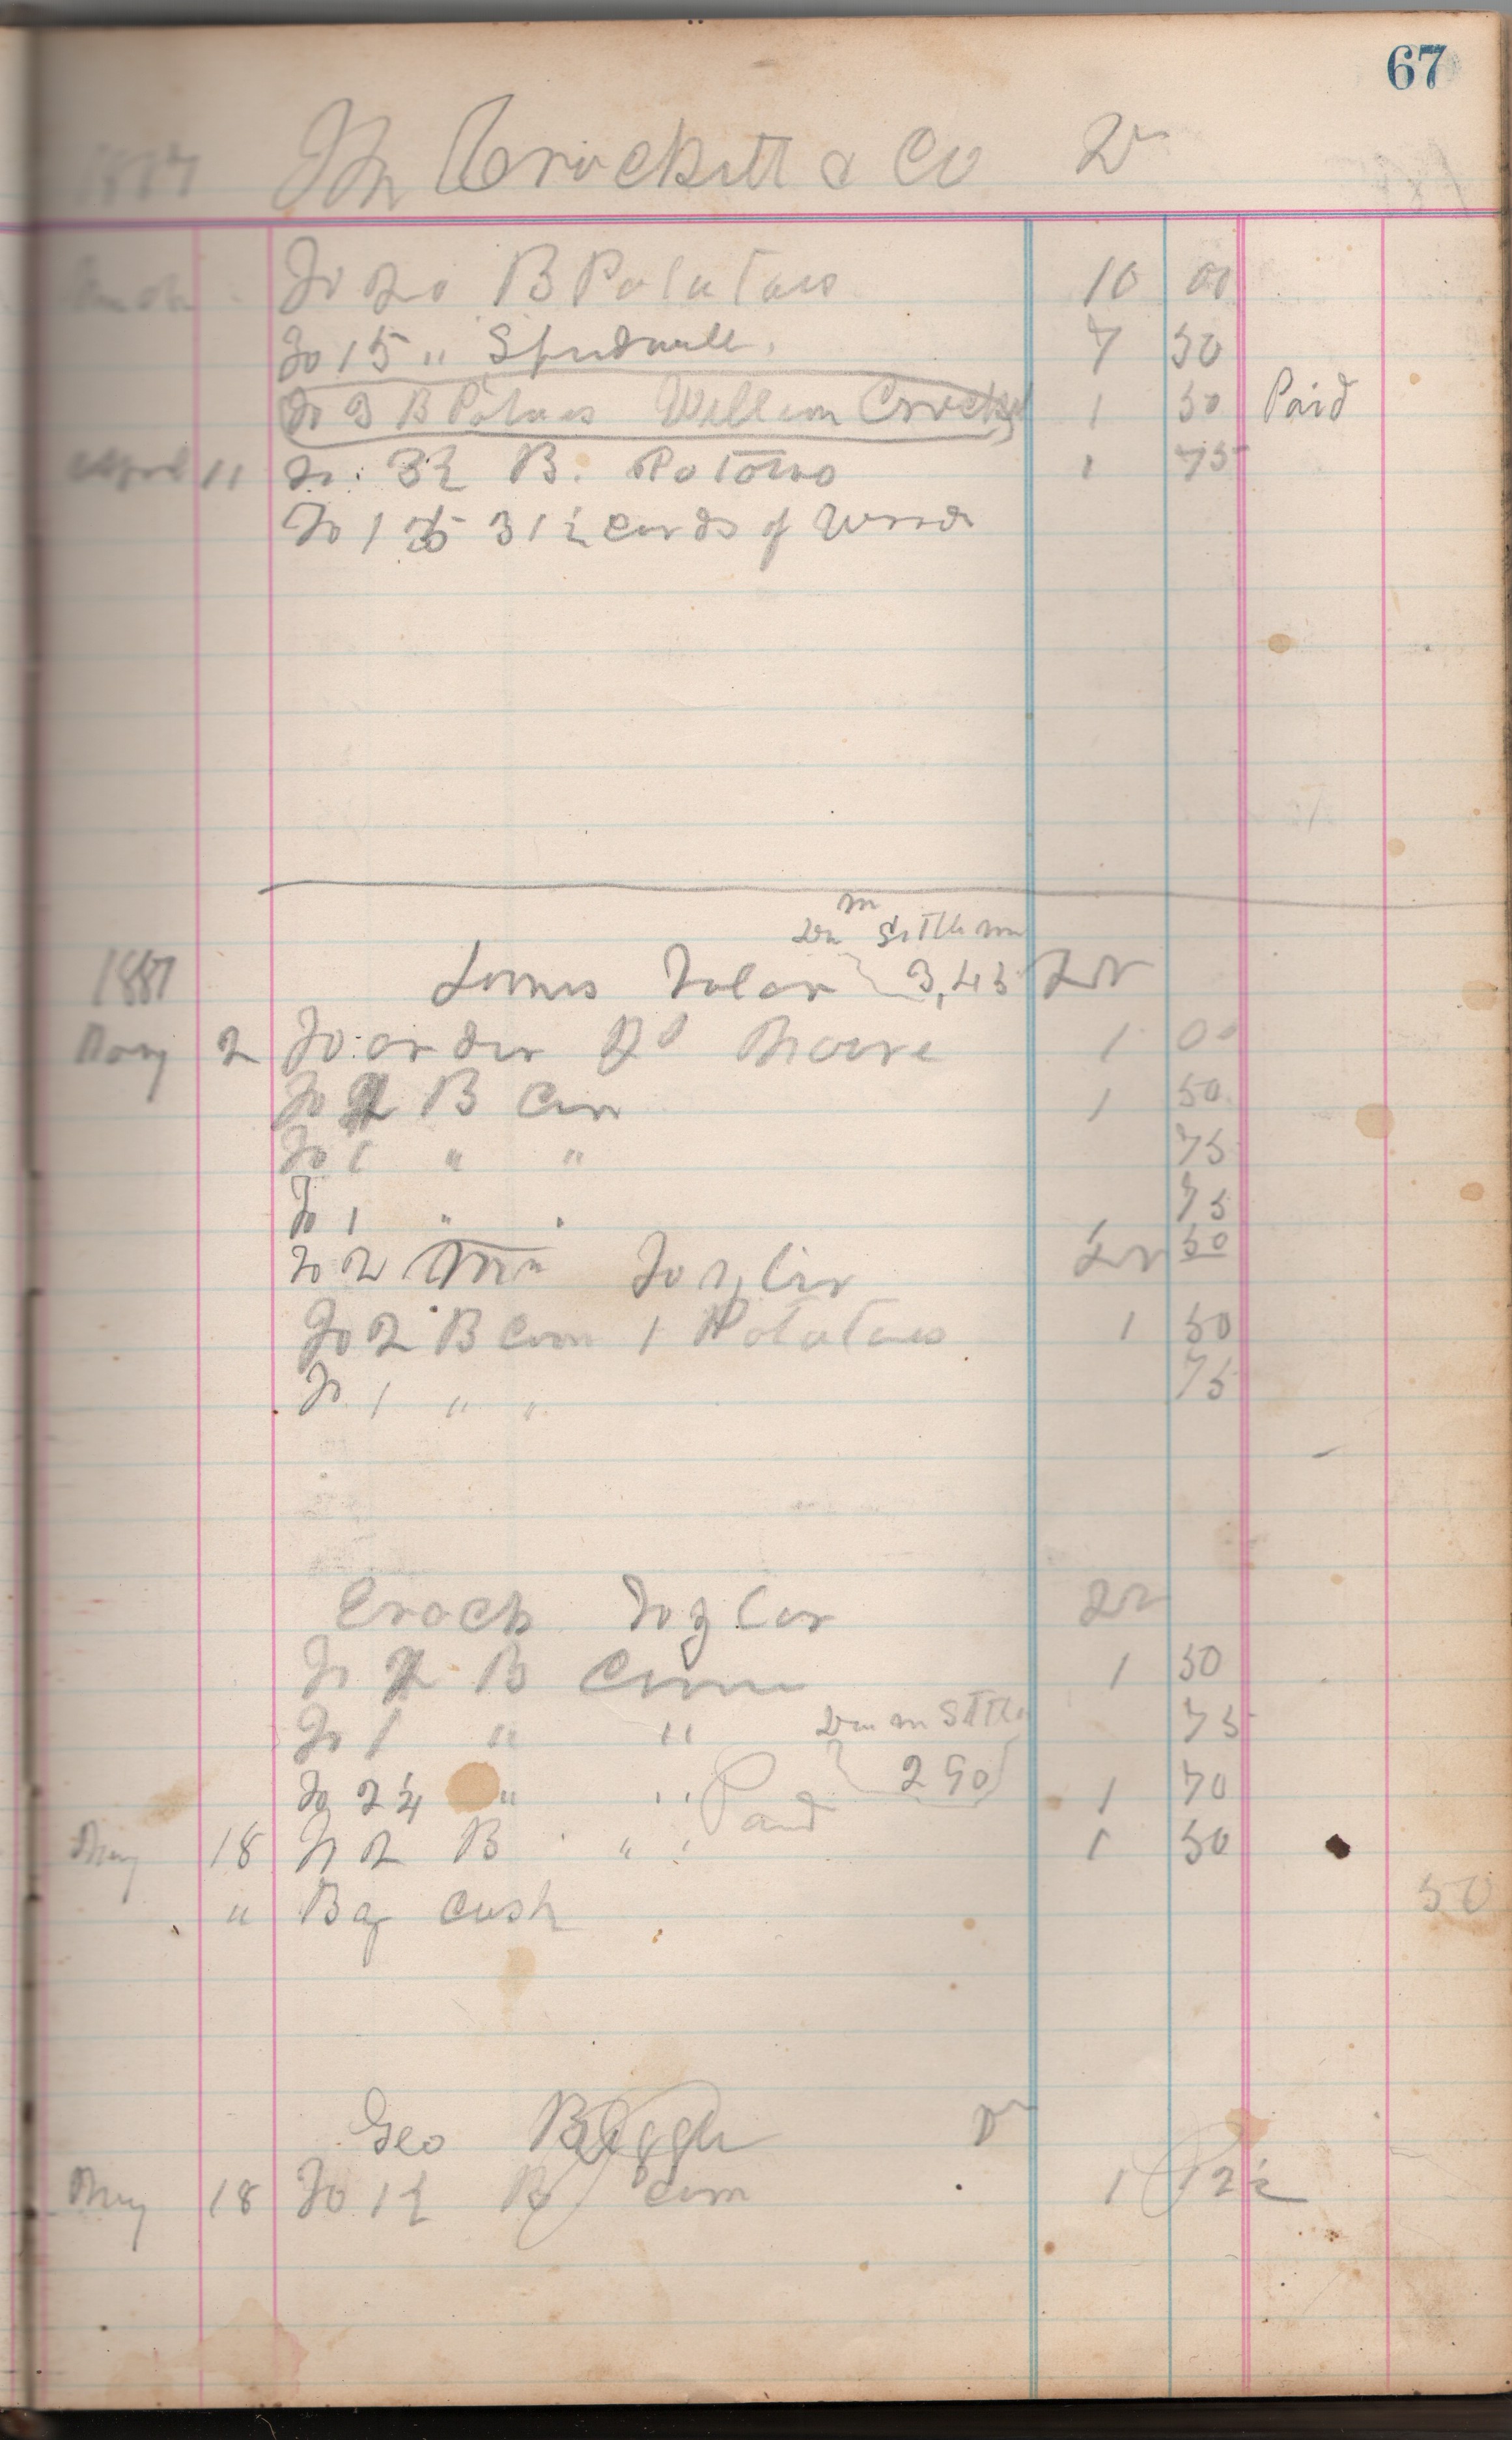 67
1887 Jn Crockett & Co Dr
March To 20 B Potatoes 10 00
To 15 " 7 50
To 3 B Potatoes William Crockett 1 50 Paid
April 11 To 3½ B. Potatoes 1 75
To 1 31½ Cords of Wood
m
Settle
1887 3,45 Dr
May 2 To order 1 00
To 2 B Corn 1 50
To 1 " " 75
To 1 " " 75
To 2 50
Taylor Dr
To 2 B Corn 1 Potatoes 1 50
To 1 " " 75
Enoch Taylor Dr
To 2 B Corn 1 50
To 1 " " m Settle 75
To 2¼ " " Paid 2 90 1 70
May 18 To 2 B " " 1 50
" By Cash 50
Geo Dr
May 18 To 1½ B Corn 1 12½